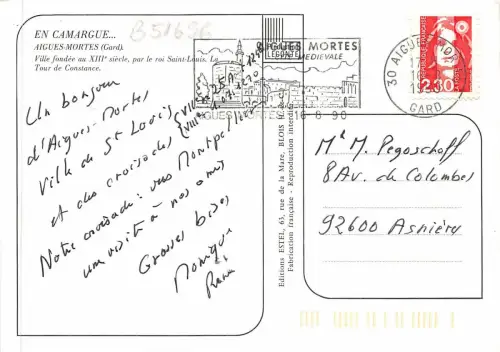 B51656
EN CAMARGUE...
AIGUES-MORTES (Gard).
Ville fondée au XIIIe siècle, par le roi Saint-Louis. La
Tour de Constance.
Un bonjour
d'Aigues-Mortes
Ville de St Louis
et des croisades
Notre croisade: vers Montpellier
une visite à nos amis
Grosses bises
Monique
Editions ESTEL, 63, rue de la Mare, BLOIS
Fabrication française - Reproduction interdite
AIGUES MORTES
MEDIEVALE
AIGUES MORTES
16-8 90
30 AIGUES MORTES
GARD
2,30
M. M. Pegoschoff
8 Av. de Colombes
92600 Asnières